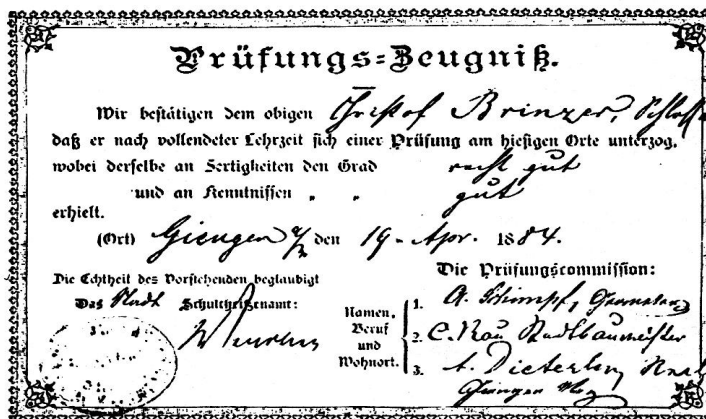 Prüfungs-Zeugniß.
Wir bestätigen dem obigen Christof Brinzer,
daß er nach vollendeter Lehrzeit sich einer Prüfung am hiesigen Orte unterzog,
wobei derselbe an Fertigkeiten den Grad recht gut
und an Kenntnissen " " gut
erhielt.
(Ort) Giengen a/ den 19. Apr. 1884.
Die Echtheit des Vorstehenden beglaubigt
Das Stadt Schultheißenamt:
Die Prüfungscommission:
Namen, Beruf und Wohnort.
1. A. Schimpf,
2. C. Rau Stadtbaumeister
3. A. Dieterlen
Giengen